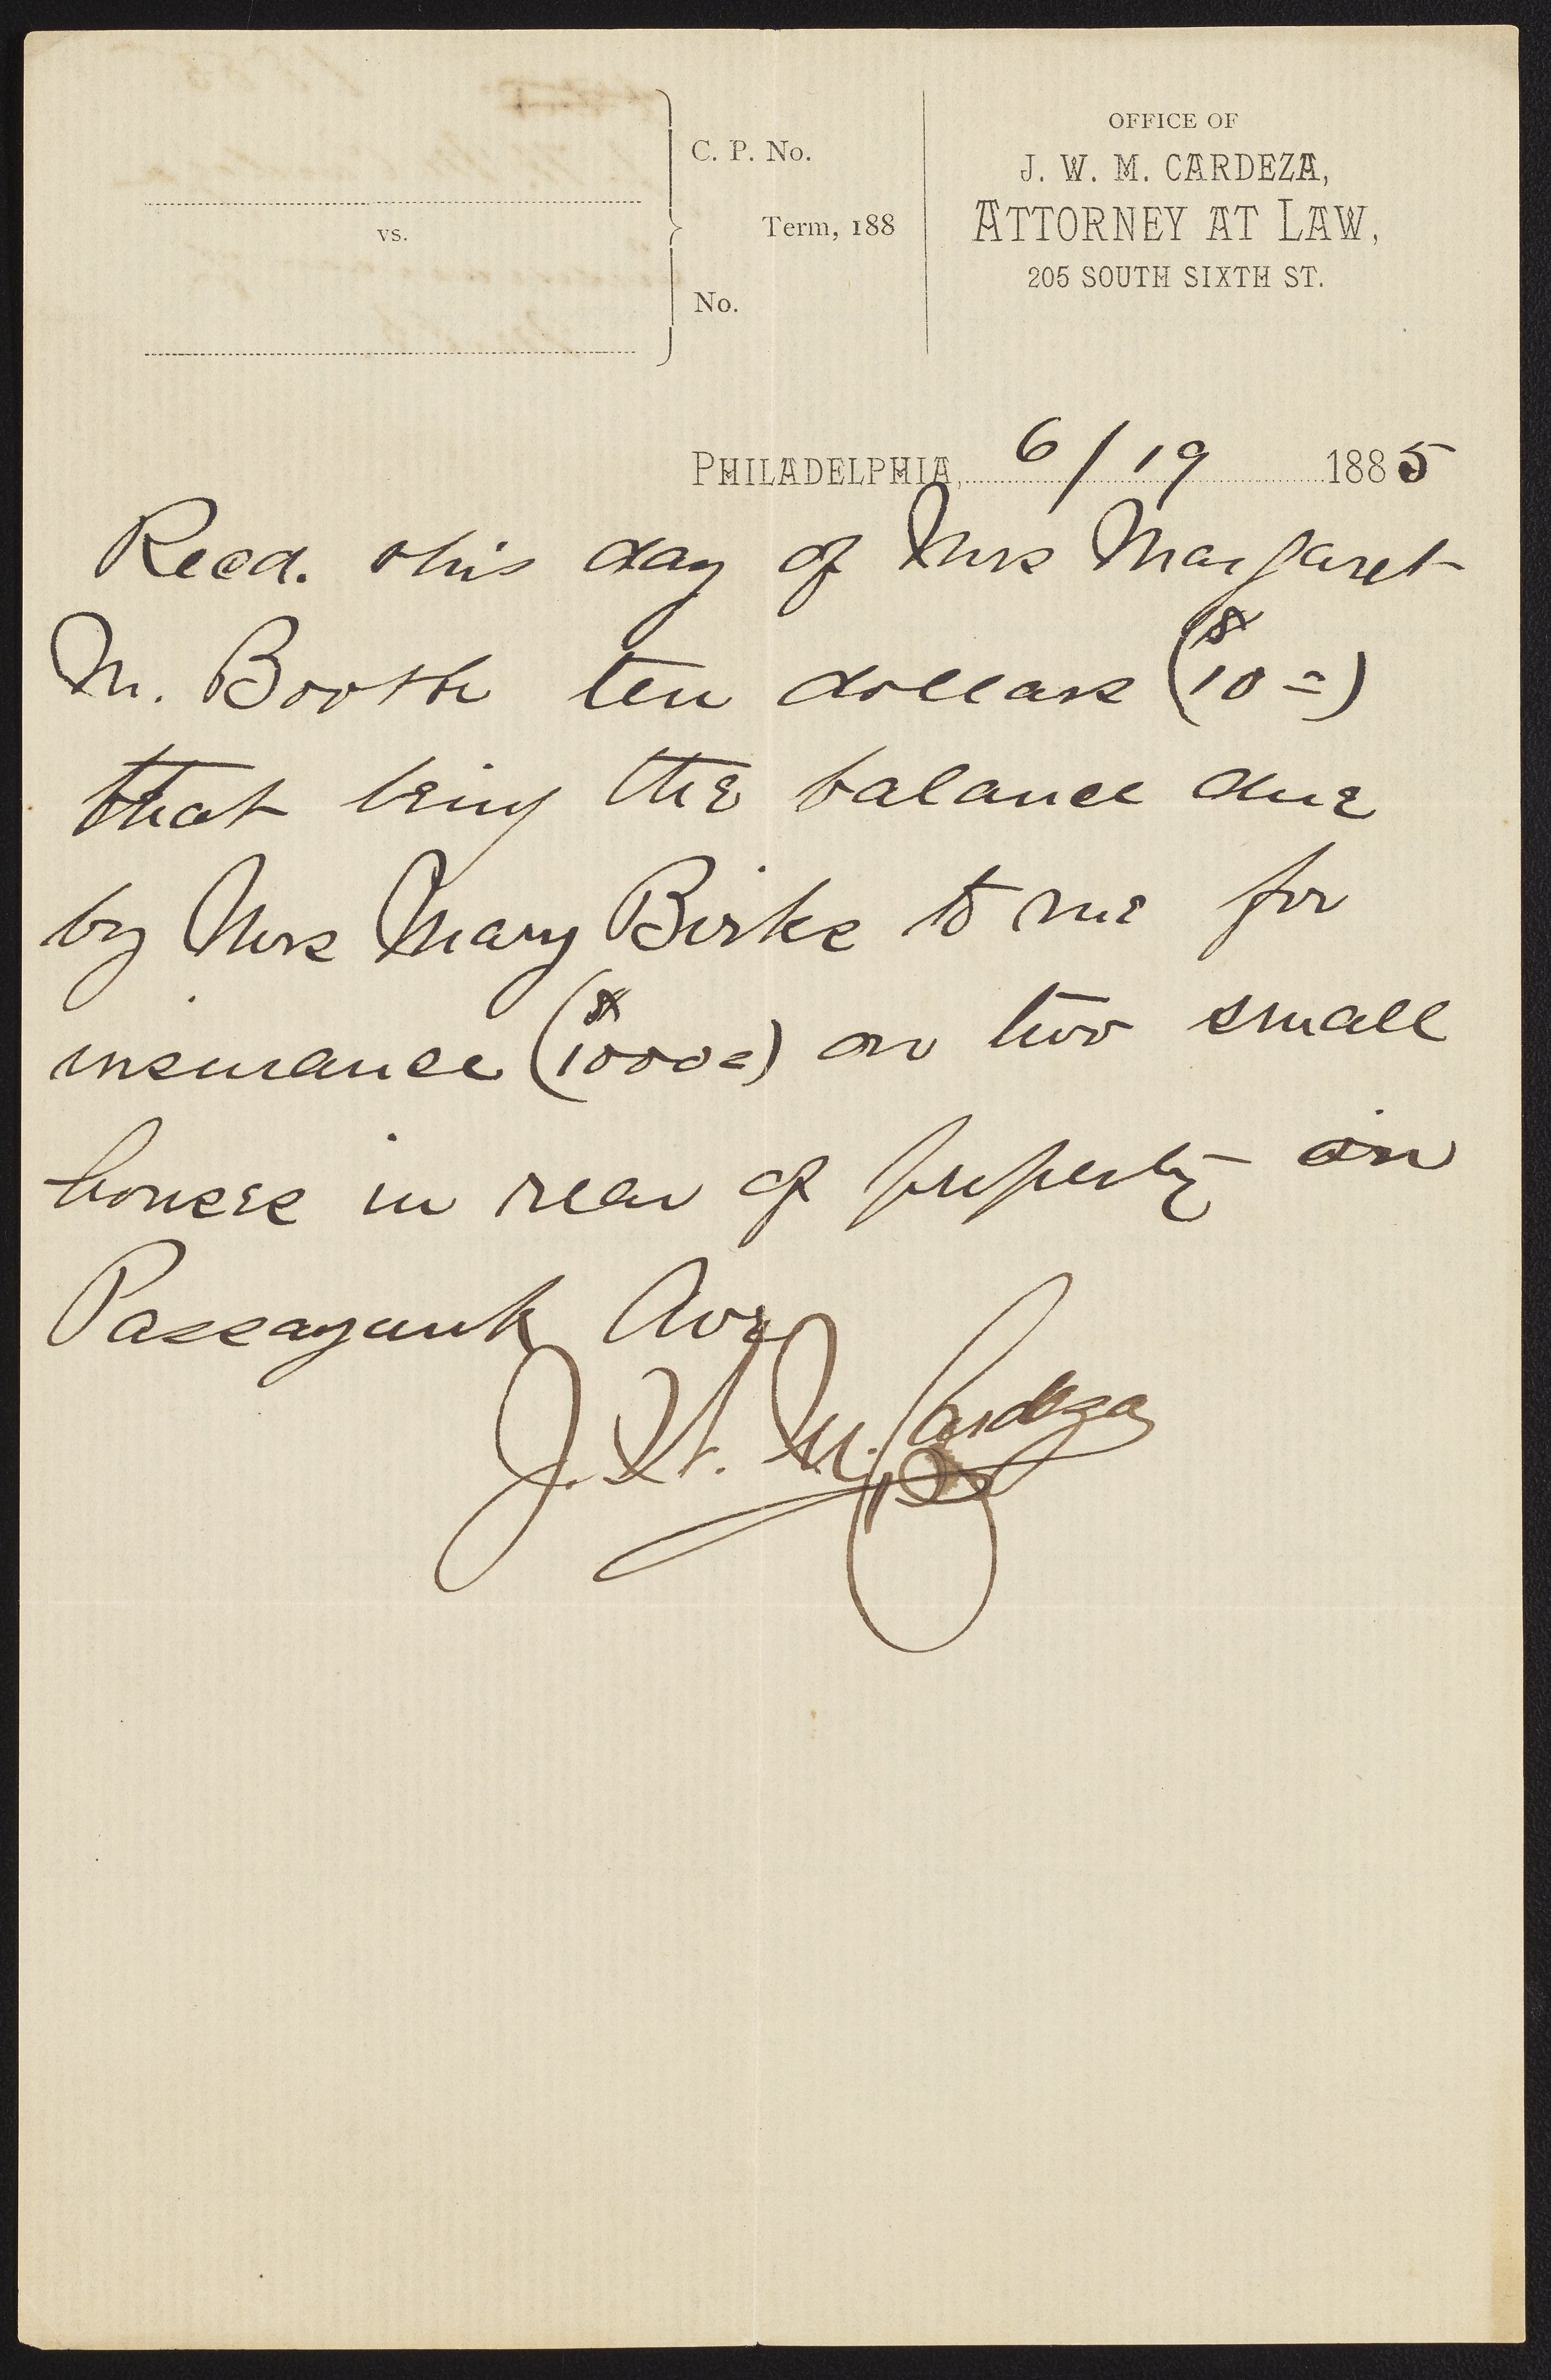 OFFICE OF
J. W. M. CARDEZA,
ATTORNEY AT LAW,
205 SOUTH SIXTH ST.
C. P. No.
vs.
Term, 188
No.
PHILADELPHIA, 6/19 1885
Recd. this day of Mrs Margaret
M. Booth ten dollars ($10=)
that being the balance due
by Mrs Mary Birke to me for
insurance ($1000=) on two small
houses in rear of property on
Passayunk Ave
J. W. M. Cardeza